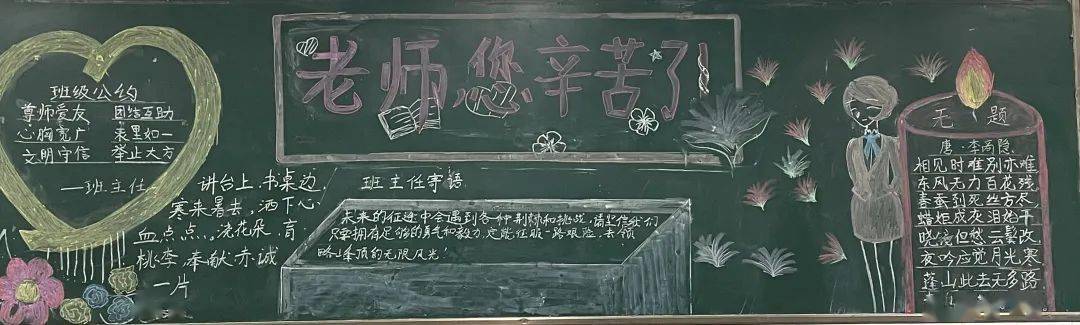 老师,您辛苦了!
班级公约
尊师爱友 团结互助
心胸宽广 表里如一
文明守信 举止大方
—班主任
讲台上,书桌边,
寒来暑去,洒下心
血点点。浇花朵,育
桃李,奉献赤诚
一片
班主任寄语
未来的征途中会遇到各种荆棘和挑战,请坚信我们
只要拥有足够的勇气和毅力,定能征服一路艰险,去领
略峰顶的无限风光!
无题
唐·李商隐
相见时难别亦难
东风无力百花残
春蚕到死丝方尽
蜡炬成灰泪始干
晓镜但愁云鬓改
夜吟应觉月光寒
蓬山此去无多路